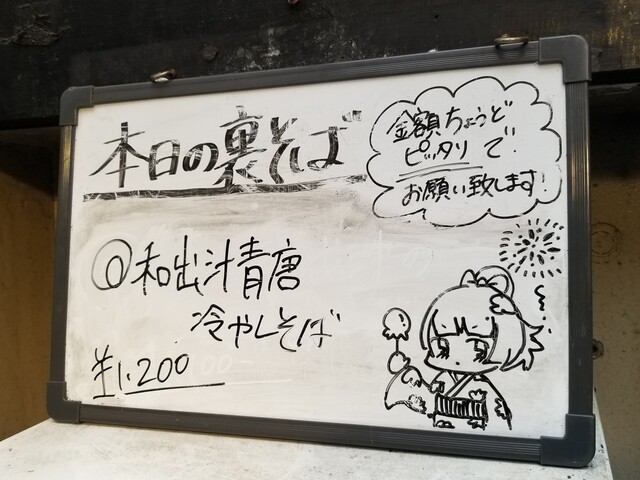 本日の裏そば
金額ちょうど
ピッタリで!
お願い致します!
@和出汁青唐
冷やしそば
¥1,200